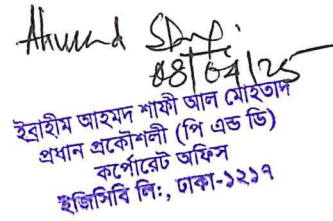 08/04/25
ইব্রাহীম আহমদ শাফী আল মোহতাদ
প্রধান প্রকৌশলী (পি এন্ড ডি)
কর্পোরেট অফিস
ইজিসিবি লি:, ঢাকা-১২১৭